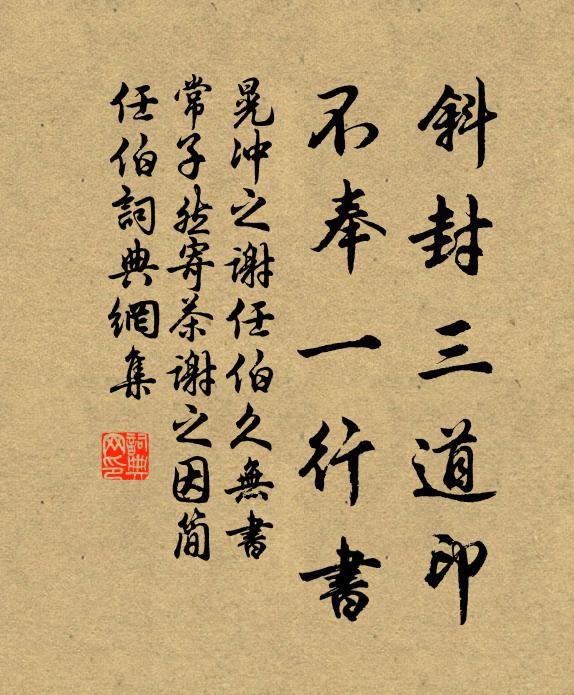 斜封三道印
不奉一行書
晁沖之謝任伯久無書
常子然寄茶謝之因简
任伯詞典網集
詞典
网印